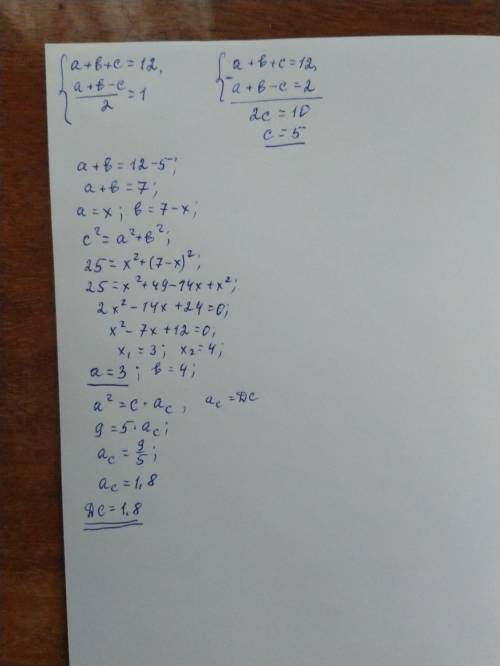 {a+b+c=12,
{(a+b-c)/2=1
{a+b+c=12,
{-a+b-c=2
2c=10
c=5
a+b=12-5;
a+b=7;
a=x; b=7-x;
c²=a²+b²;
25=x²+(7-x)²;
25=x²+49-14x+x²;
2x²-14x+24=0;
x²-7x+12=0;
x₁=3; x₂=4;
a=3; b=4;
a²=c·a_c, a_c=DC
9=5·a_c;
a_c=9/5;
a_c=1,8
DC=1,8